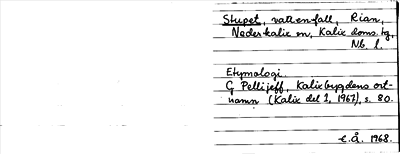 Stupet, vattenfall, Rian,
Nederkalix sn, Kalix doms.bg,
Nb. l.
Etymologi.
G Pellijeff, Kalixbygdens ort-
namn (Kalix del 1, 1967), s. 80.
1968.